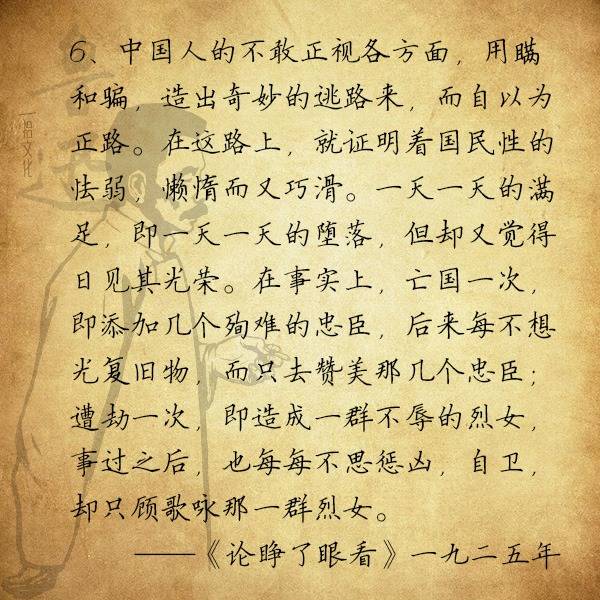 6、中国人的不敢正视各方面，用瞒
和骗，造出奇妙的逃路来，而自以为
正路。在这路上，就证明着国民性的
怯弱，懒惰而又巧滑。一天一天的满
足，即一天一天的堕落，但却又觉得
日见其光荣。在事实上，亡国一次，
即添加几个殉难的忠臣，后来每不想
光复旧物，而只去赞美那几个忠臣；
遭劫一次，即造成一群不辱的烈女，
事过之后，也每每不思惩凶，自卫，
却只顾歌咏那一群烈女。
——《论睁了眼看》一九二五年